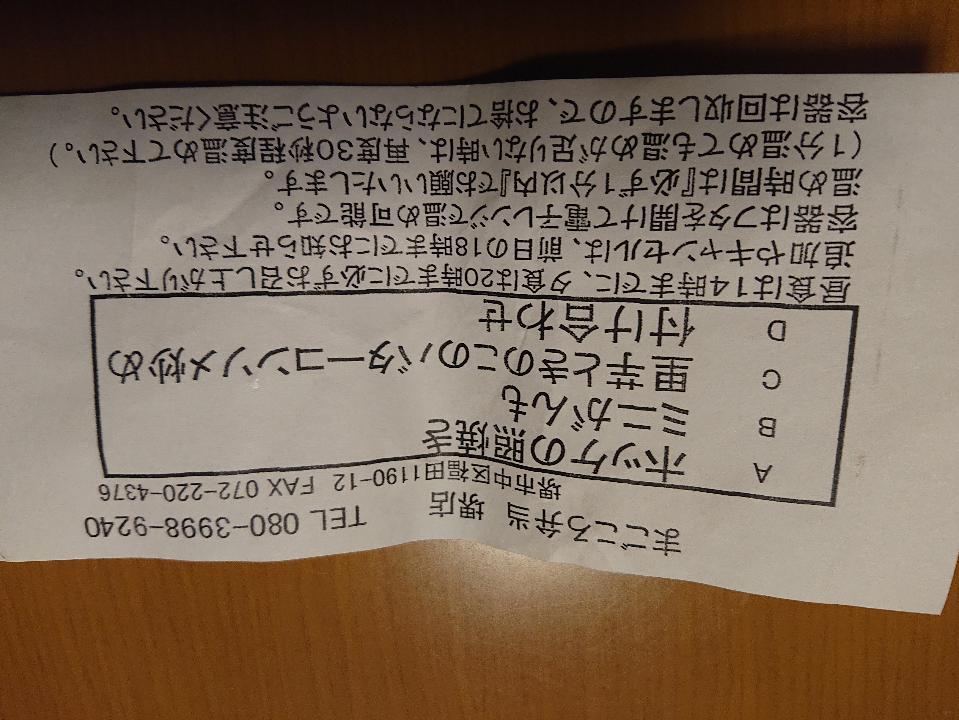 まごころ弁当 堺店 TEL 080-3998-9240
堺市中区福田1190-12 FAX 072-220-4376
A ホッケの照焼き
B ミニがんも
C 里芋ときのこのバターコンソメ炒め
D 付け合わせ
昼食は14時までに、夕食は20時までに必ずお召し上がり下さい。
追加やキャンセルは、前日の18時までにお知らせ下さい。
容器はフタを開けて電子レンジで温め可能です。
温め時間は『必ず1分以内』でお願いいたします。
(1分温めても温めが足りない時は、再度30秒程度温めて下さい。)
容器は回収しますので、お捨てにならないようご注意ください。